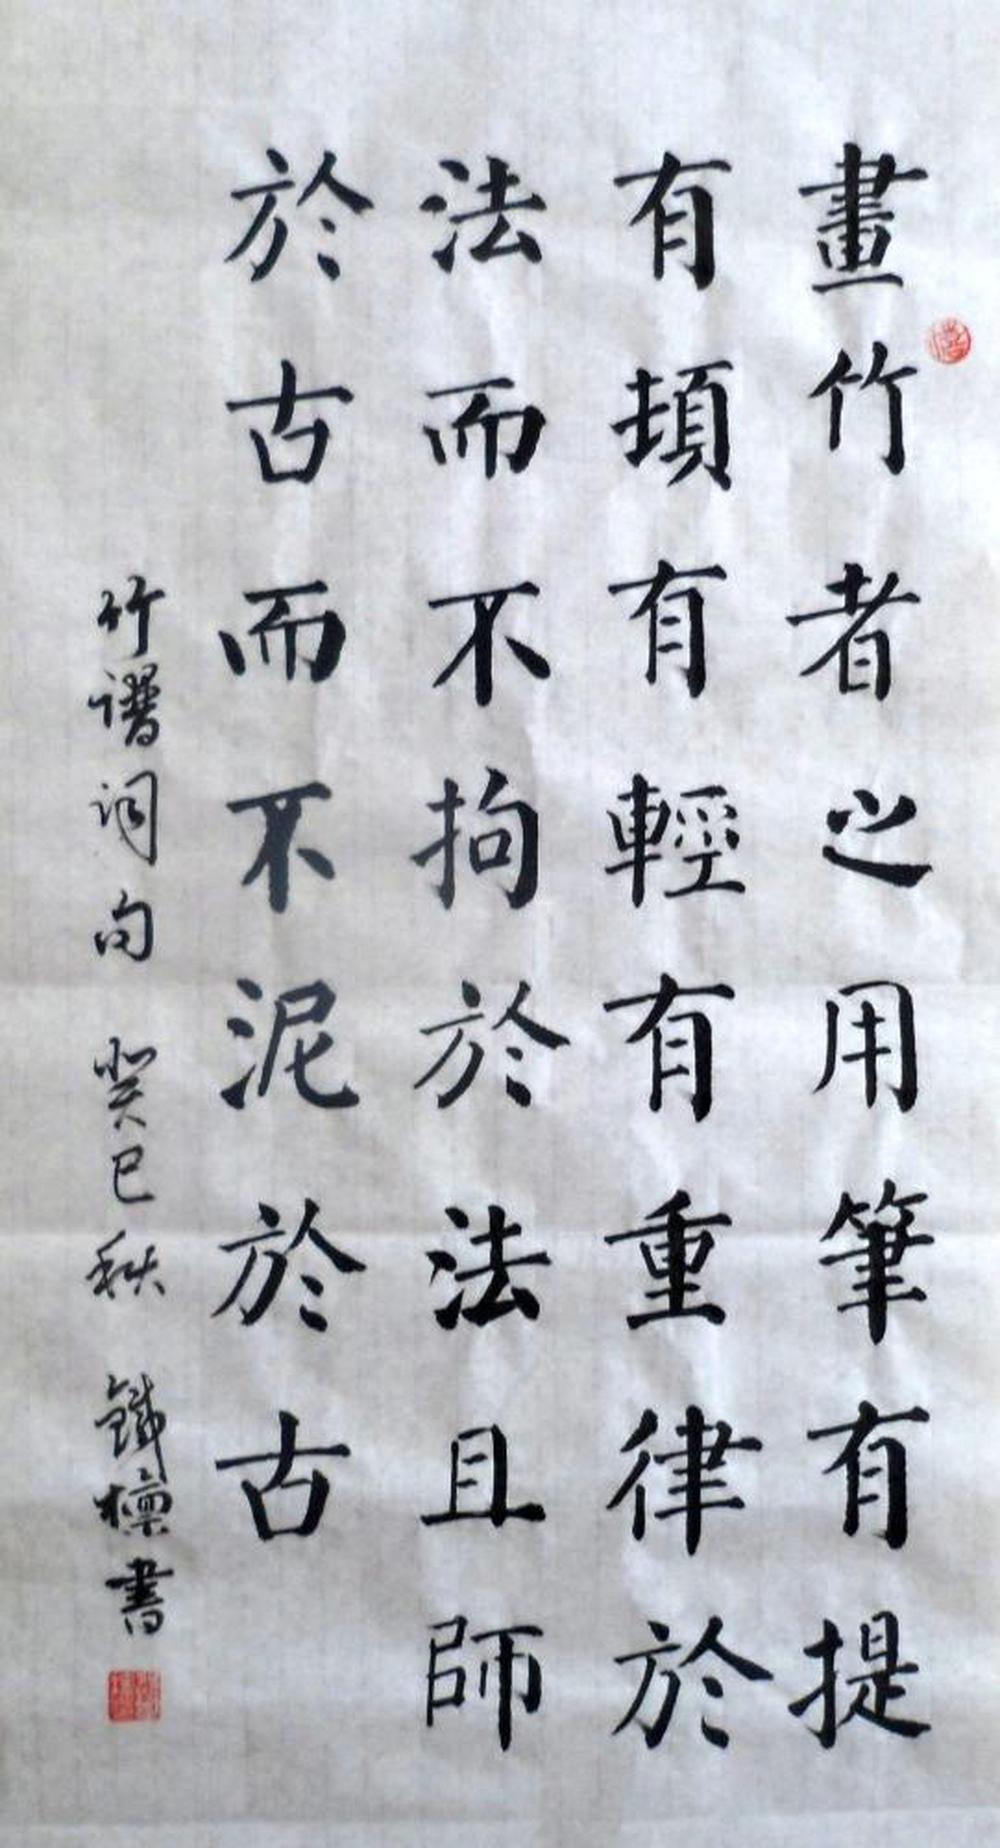 畫竹者之用筆有提
有頓有輕有重律於
法而不拘於法且師
於古而不泥於古
竹譜詞句 癸巳秋 鐵檁書